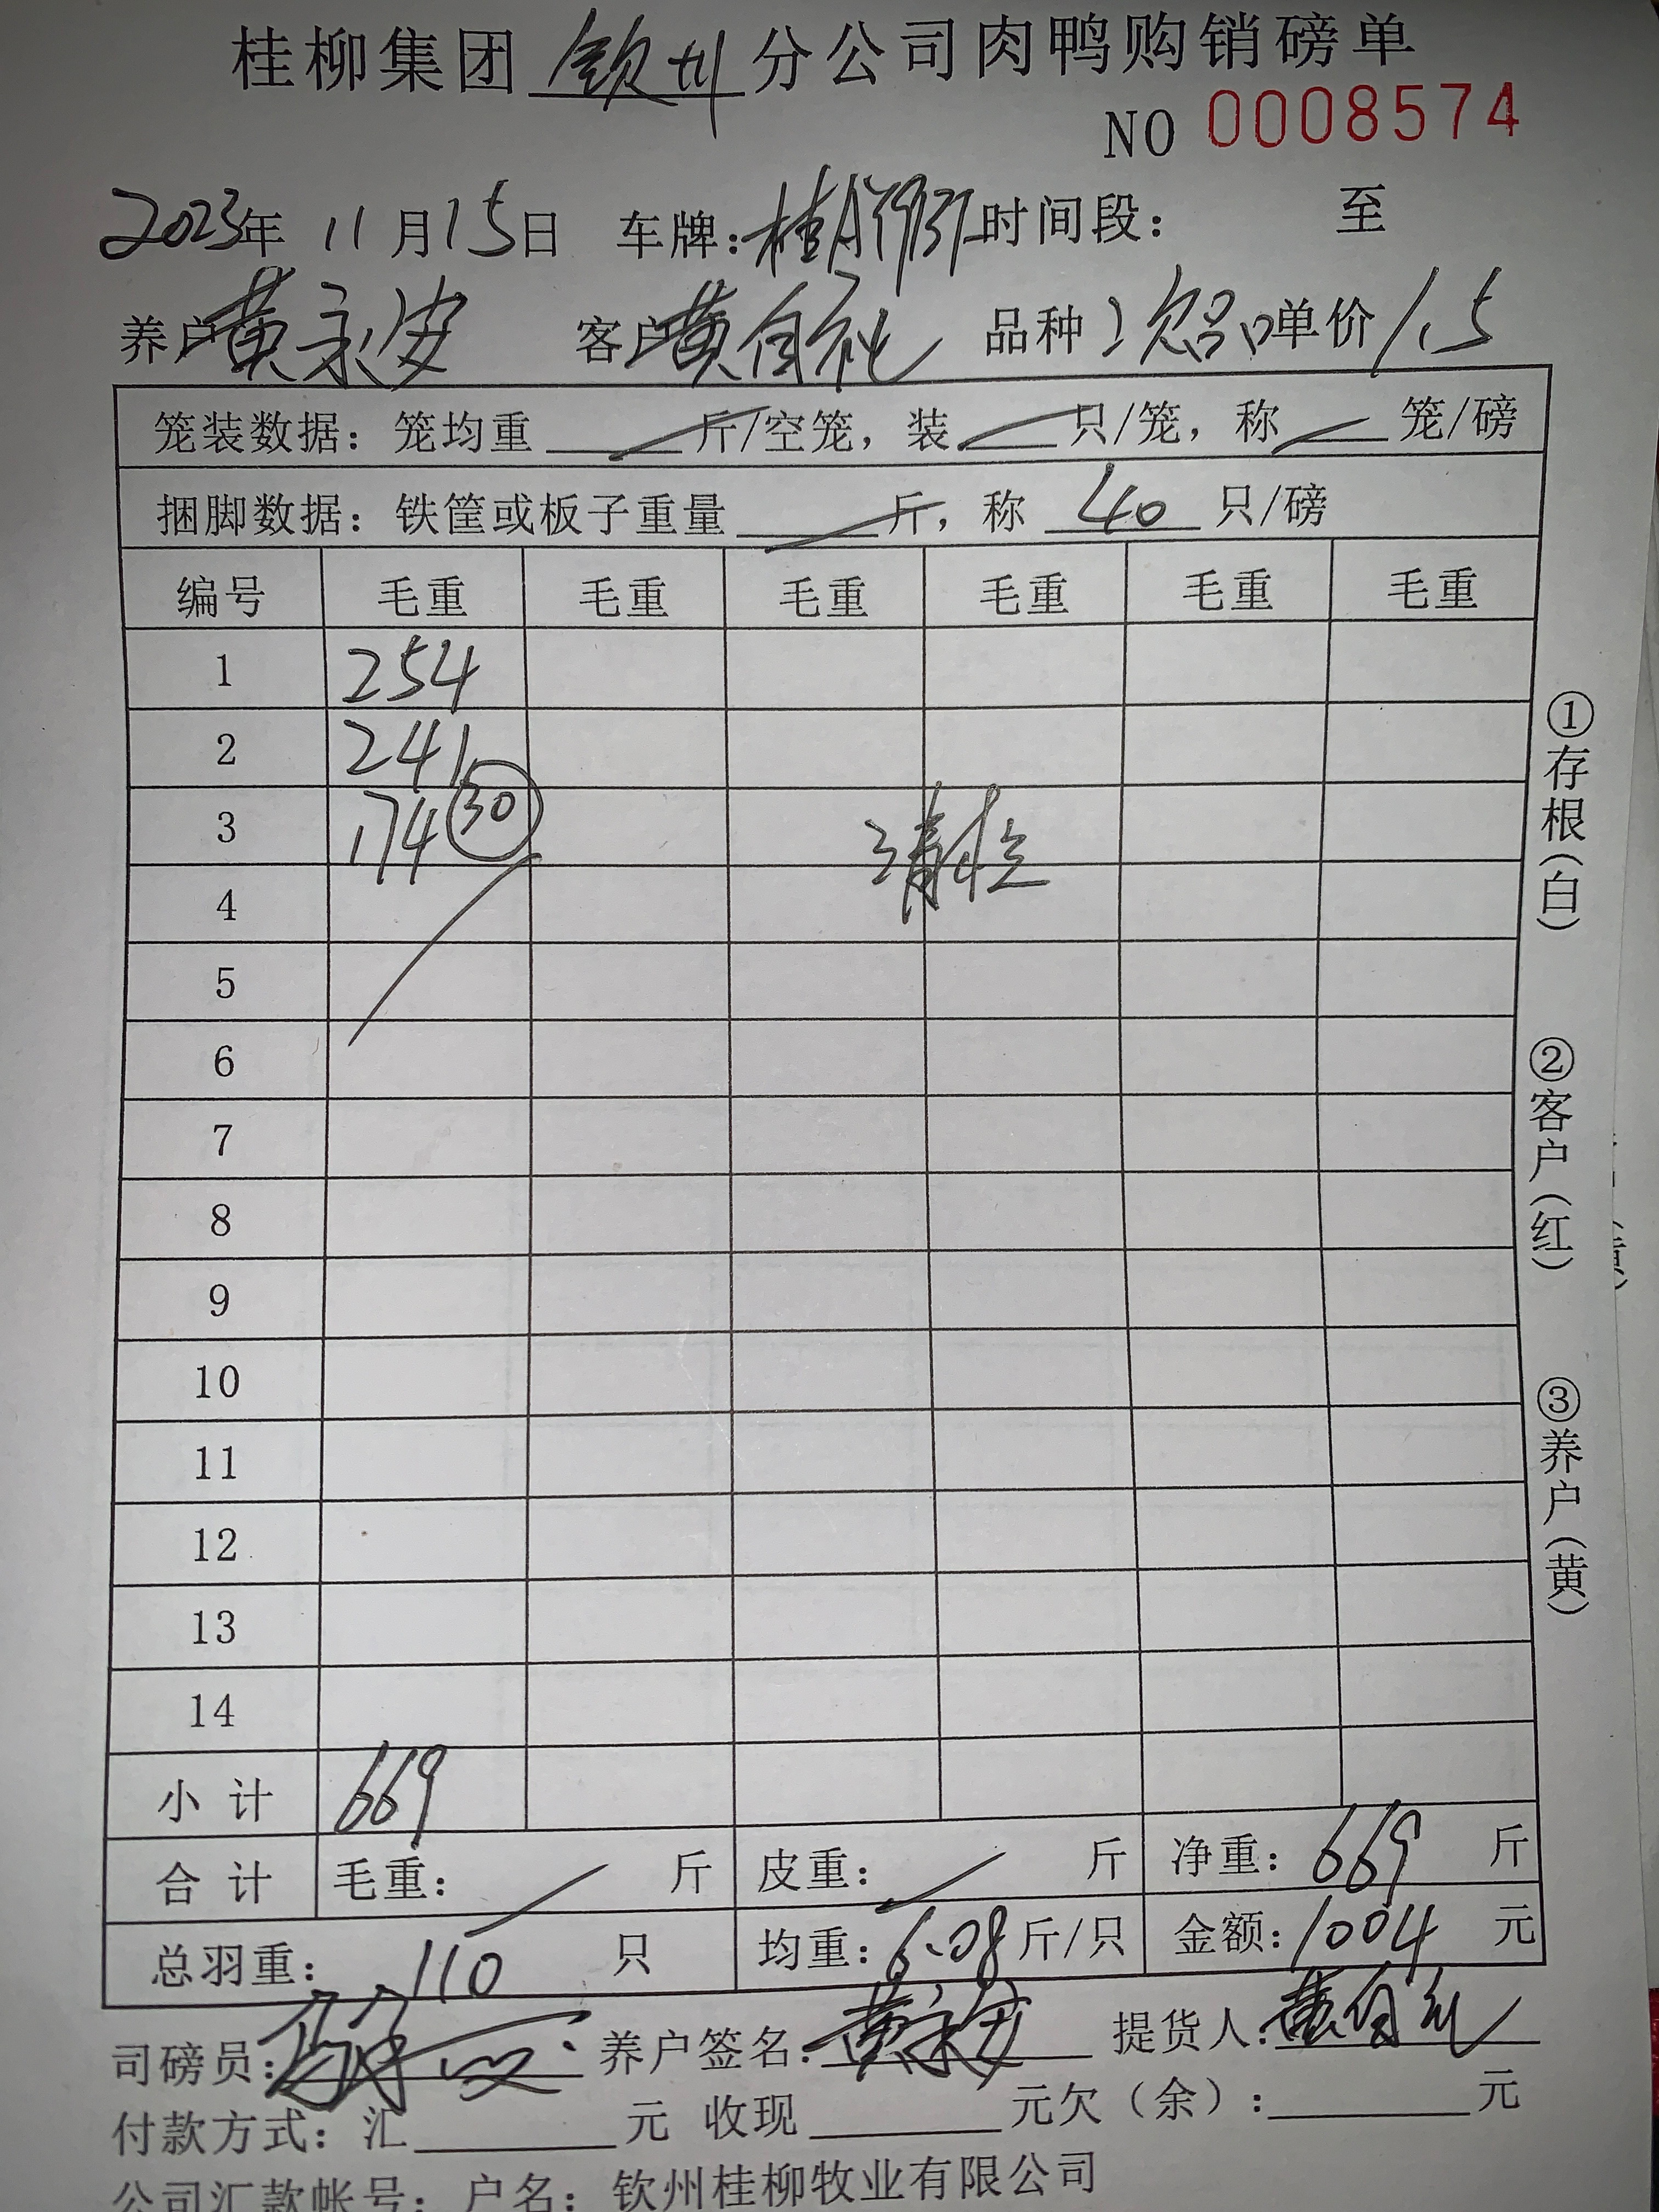 桂柳集团钦州分公司肉鸭购销磅单
NO 0008574
2023年 11月15日 车牌:桂A 时间段: 至
养户黄永安 客户黄自礼 品种 单价1.5
笼装数据: 笼均重 斤/空笼, 装 只/笼, 称 笼/磅
捆脚数据: 铁筐或板子重量 斤, 称 40 只/磅
编号 毛重 毛重 毛重 毛重 毛重 毛重
1 254
2 241
3 174 30
清栏
4
5
6
7
8
9
10
11
12
13
14
小计 669
合计 毛重: 斤 皮重: 斤 净重: 669 斤
总羽重: 110 只 均重: 6.08 斤/只 金额: 1004 元
司磅员: 养户签名: 黄永安 提货人: 黄自礼
付款方式: 汇 元 收现 元欠(余): 元
公司汇款帐号: 户名: 钦州桂柳牧业有限公司
①存根(白)
②客户(红)
③养户(黄)